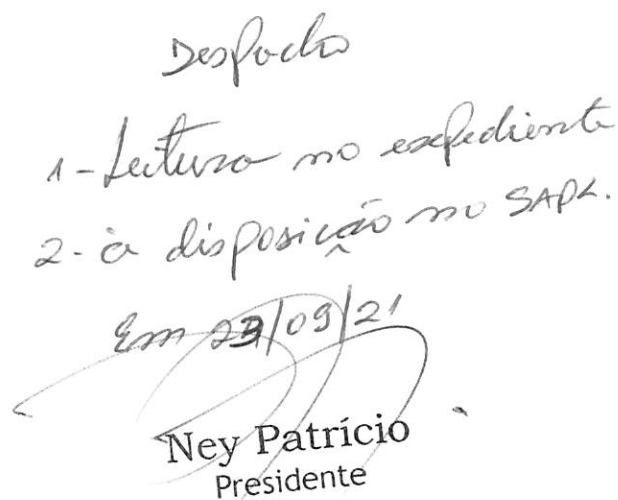 Despacho
1-Leitura no expediente
2-à disposição no SAPL.
Em 23/09/21
Ney Patrício
Presidente